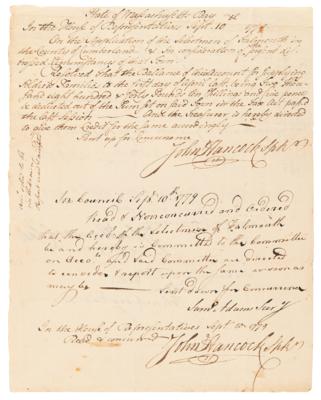 State of Massachusetts Bay
In the House of Representatives Sept. 10 1779
On the Application of the Selectmen of Falmouth in
the County of Cumberland & in consideration of the
Circumstances of said Town
Resolved that the Ballance of
Soldiers Families to the last day of April last, being two thou-
sand eight hundred & forty Pounds six shillings and six pence
be deducted out of the Sum set on said Town in the Tax Act pass'd
the last Session And the Treasurer is hereby directed
to give them Credit for the same accordingly
Sent up for Concurrence
John Hancock Spkr
In Council Sept. 10th 1779
Read & Nonconcurred and Ordered
that the Accot. of the Selectmen of Falmouth
be and hereby is Committed to the Committee
on Accots. and said Committee are directed
to consider & report upon the same as soon as
may be Sent down for Concurrence
Saml Adams Secy
In the House of Representatives Sept 10 1779
Read & concurred
John Hancock Spkr